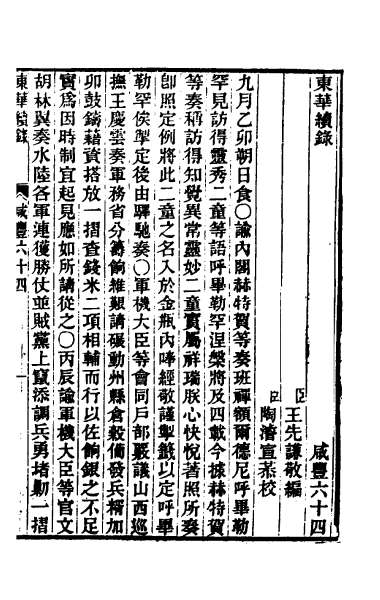 東華續錄　咸豐六十四
臣王先謙敬編
臣陶濬宣恭校
九月乙卯朔日食○諭內閣赫特賀等奏班禪額爾德尼呼畢勒
罕見訪得靈秀二童等語呼畢勒罕涅槃將及四載今據赫特賀
等奏稱訪得知覺異常靈妙二童實屬祥瑞朕心快悅著照所奏
卽照定例將此二童之名入於金瓶內唪經敬謹掣籤以定呼畢
勒罕俟掣定後由驛馳奏○軍機大臣等會同戶部嚴議山西巡
撫王慶雲奏軍務省分籌餉維艱請碾動州縣倉穀備發兵糈加
卯鼓鑄藉資搭放一摺查錢米二項相輔而行以佐餉銀之不足
實爲因時制宜起見應如所請從之○丙辰諭軍機大臣等官文
胡林翼奏水陸各軍連獲勝仗並賊黨上竄添調兵勇堵勦一摺
東華續錄　咸豐六十四　一